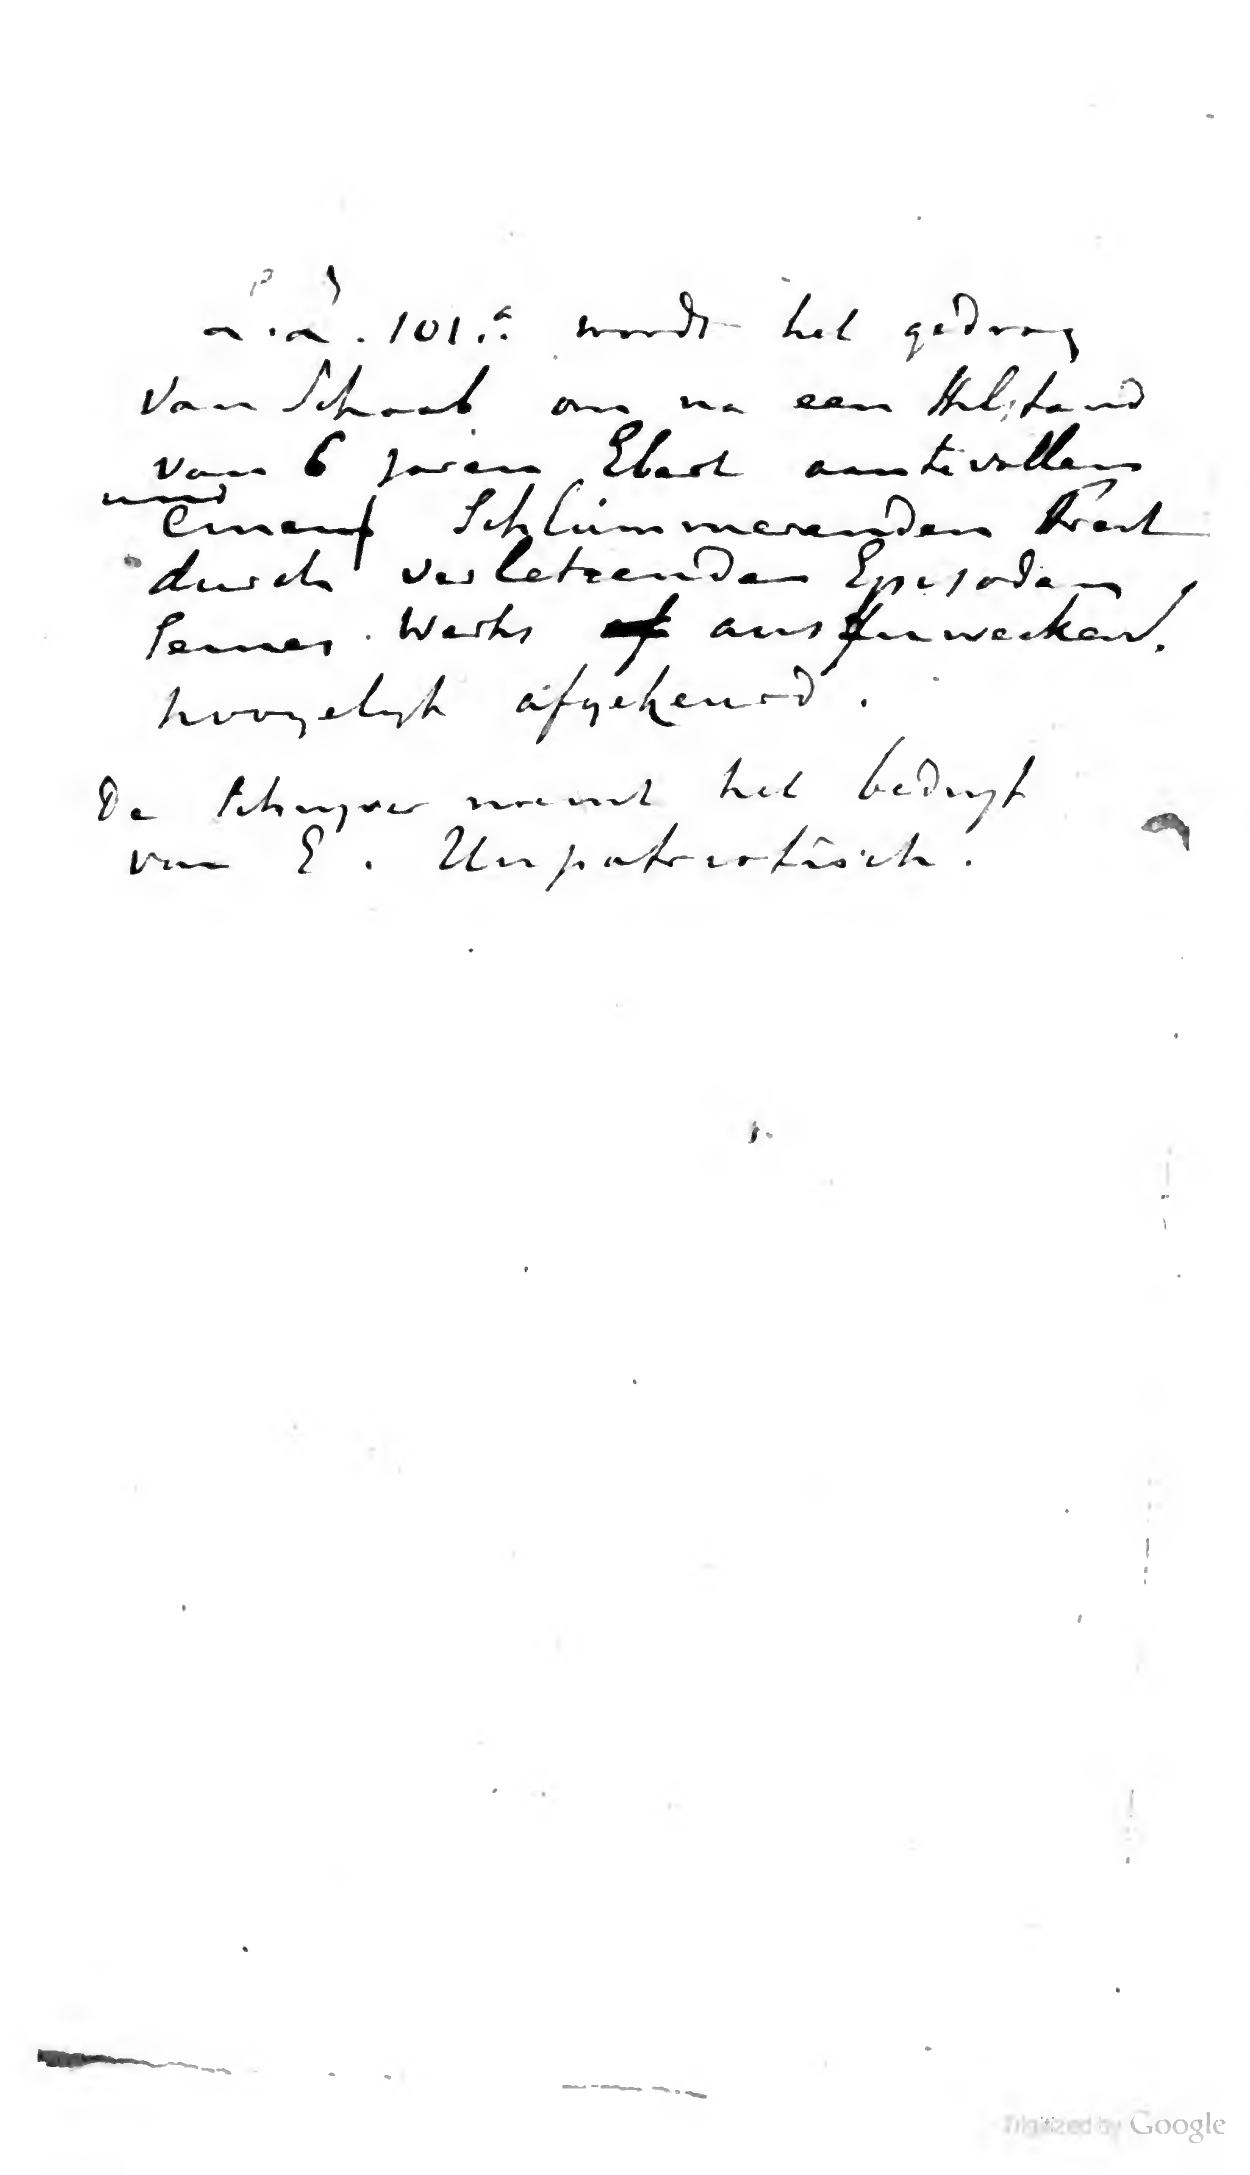 a.a. 101. wordt het gedrag
van Schaab om na een stilstand
van 6 jaren Ebert aantevallen
und
einen Schlümmerenden Streit
durch verletzenden Episoden
seines Werks aufzuwecken!
hoogelijk afgekeurd.
De Schrijver noemt het bedrijf
van E. Unpatriotisch.
Digitized by Google